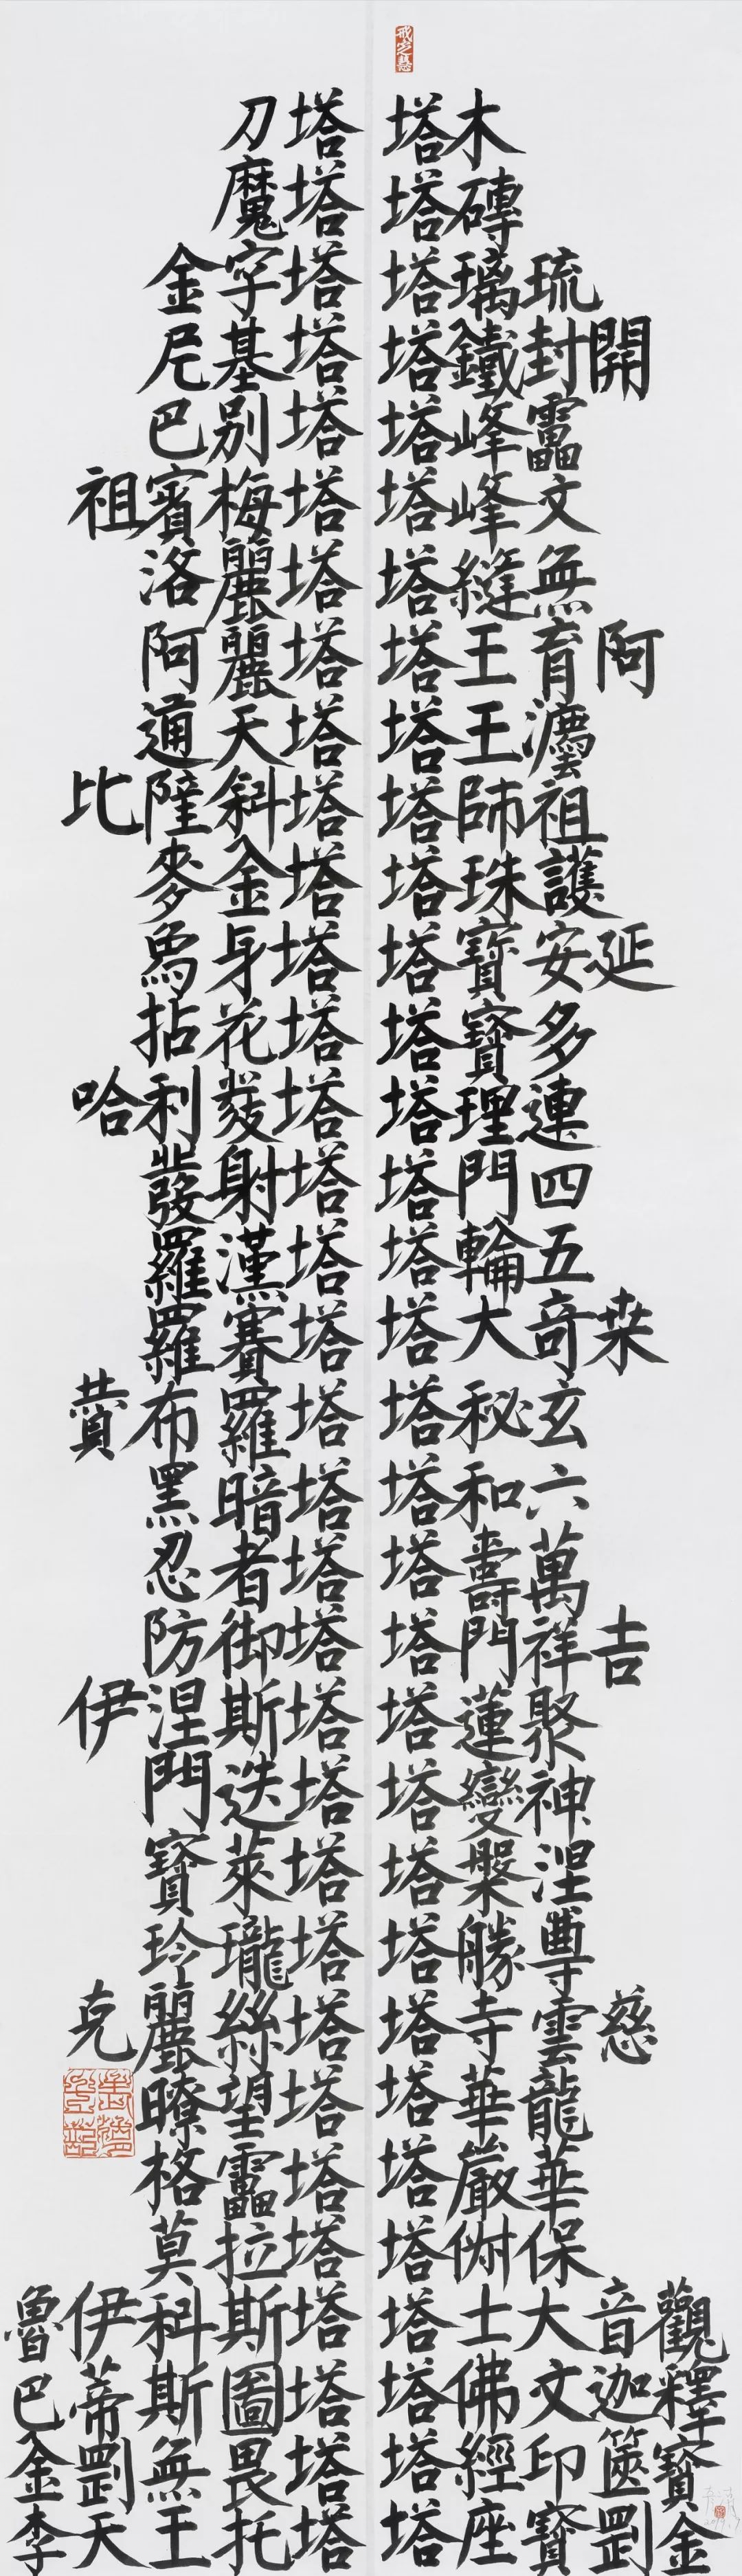 木塔
磚塔
琉璃塔
開封鐵塔
靁峰塔
文峰塔
無縫塔
阿育王塔
灋王塔
祖師塔
護珠塔
延安寶塔
多寶塔
連理塔
四門塔
五輪塔
桒奇大塔
玄秘塔
六和塔
萬壽塔
吉祥門塔
聚蓮塔
神變塔
涅槃塔
尊勝塔
慈雲寺塔
龍華塔
華嚴塔
保俶塔
觀音大士塔
釋迦文佛塔
寶篋印經塔
金剛寶座塔
刀塔
魔塔
金字塔
尼基塔
巴別塔
祖賓梅塔
洛麗塔
阿麗塔
通天塔
比隡斜塔
麥金塔
身塔
拈花塔
哈利發塔
發射塔
羅漢塔
羅賽塔
贊布羅塔
黑暗塔
忍者塔
防御塔
伊涅斯塔
門迭塔
寶萊塔
玲瓏塔
克麗絲塔
瞭望塔
格靁塔
莫拉塔
魯伊科斯塔
巴蒂斯圖塔
金剛無畏塔
李天王托塔